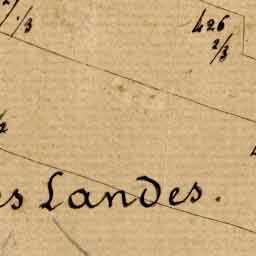 2/3
426
2/3
es Landes.